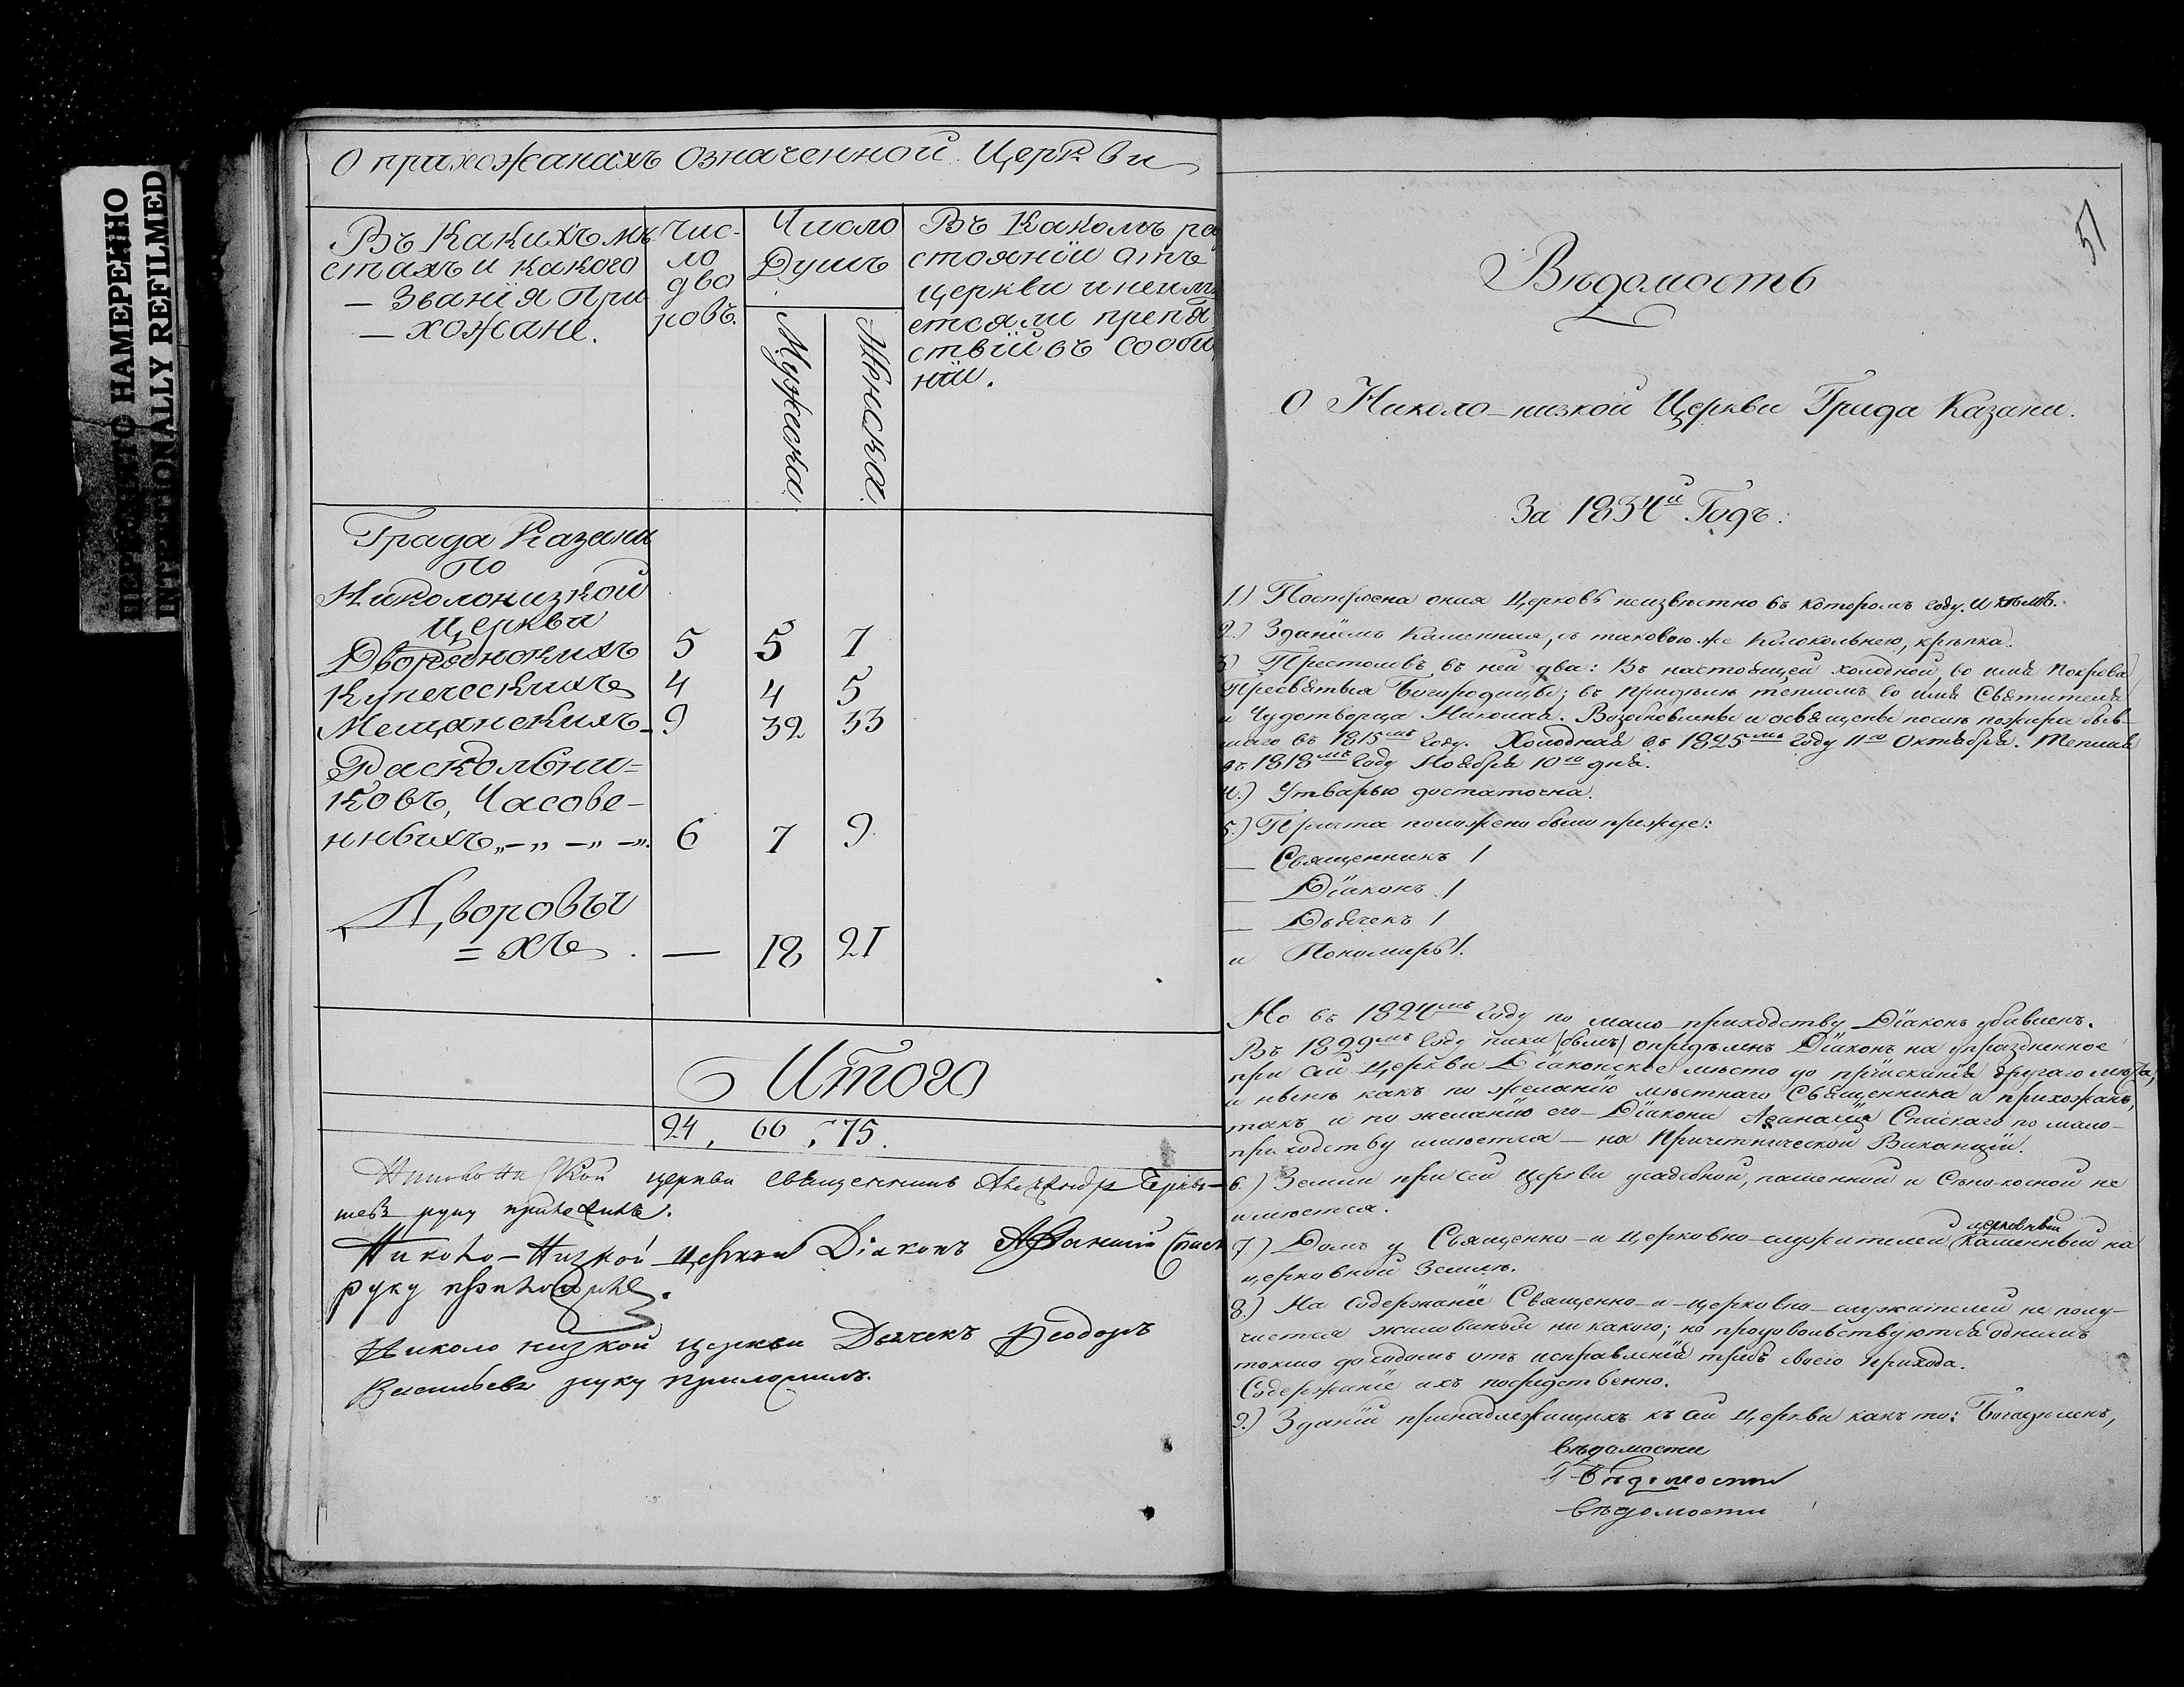 ПЕРЕСНЯТО НАМЕРЕННО
INTENTIONALLY REFILMED
О прихожанахъ означенной Церкви
Въ Какихъ мѣ
стахъ и какого
– Званія При
– хожане.
Чис-
ло
дво
ровъ.
Число
Душъ
Мужеска.
Женска.
Въ Какомъ ра
стояніи отъ
церкви и неим
ется ли препя
ствій въ сооб
ніи.
Града Казани
по
Николонизкой
церкви
Дворянскихъ 5 5 7
Купеческихъ 4 4 5
Мещанскихъ 9 32 33
Раскольни=
ковъ, Часове-
нныхъ „–„ –„ –„. 6 7 9
Дворовы
= хъ . — 18 21
Итого
24, 66, 75.
церкви священникъ Александръ
руку приложилъ.
Николо-Низкой церкви Діаконъ Афанасій Спас
руку приложилъ.
Николо низкой церкви Дьячекъ Феодоръ
Васильевъ руку приложилъ.
51
Вѣдомость
О Николо-низкой Церкви Града Казани.
За 1834й Годъ.
1.) Построена оная Церковь неизвѣстно въ которомъ году. и кѣмъ.
2.) Зданіемъ Каменная, съ таковою же Колокольнею, крѣпка.
3) Престоловъ въ ней два: Въ настоящей холодной, во имя Покрова
Пресвятыя Богородицы; въ придѣлѣ тепломъ во имя Святителя
и Чудотворца Николая. Возобновлены и освящены послѣ пожара быв-
шаго въ 1815мъ году. Холодная въ 1825мъ году 11го Октября. Теплая
въ 1818мъ году Ноября 10го дня.
4.) Утварью достаточна.
5.) Причта положено было прежде:
— Священникъ 1
— Діаконъ 1
— Дьячекъ 1
и Пономарь 1.
Но въ 1824мъ году по мало-приходству Діаконъ убавленъ.
Въ 1829мъ году паки опредѣленъ Діаконъ на упраздненное
при сей Церкви Діаконское мѣсто до пріисканія другаго мѣста,
и нынѣ какъ по желанію мѣстнаго Священника и прихожанъ,
такъ и по желанію его Діакона Аѳанасія Спаскаго по мало-
приходству имѣется — на Причетнической Ваканціи.
6.) Земли при сей Церкви усадебной, пашенной и Сѣно-косной не
имѣется.
7) Домъ у Священно-и Церковно-служителей церковный каменный на
церковной землѣ.
8.) На Содержаніе Священно-и-церковно-служителей не полу-
чается жалованья ни какого; но продовольствуются однимъ
токмо доходомъ отъ исправленія требъ своего прихода.
Содержаніе ихъ посредственно.
9.) Зданій принадлежащихъ къ сей Церкви какъ то: Богадѣленъ,
вѣдомости
Вѣдомости
вѣдомости